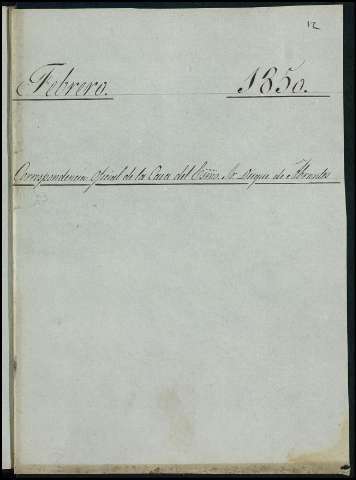 12
Febrero. 1850.
Correspondencia Oficial de la Casa del Exmo. Sr. Duque de Abrantes